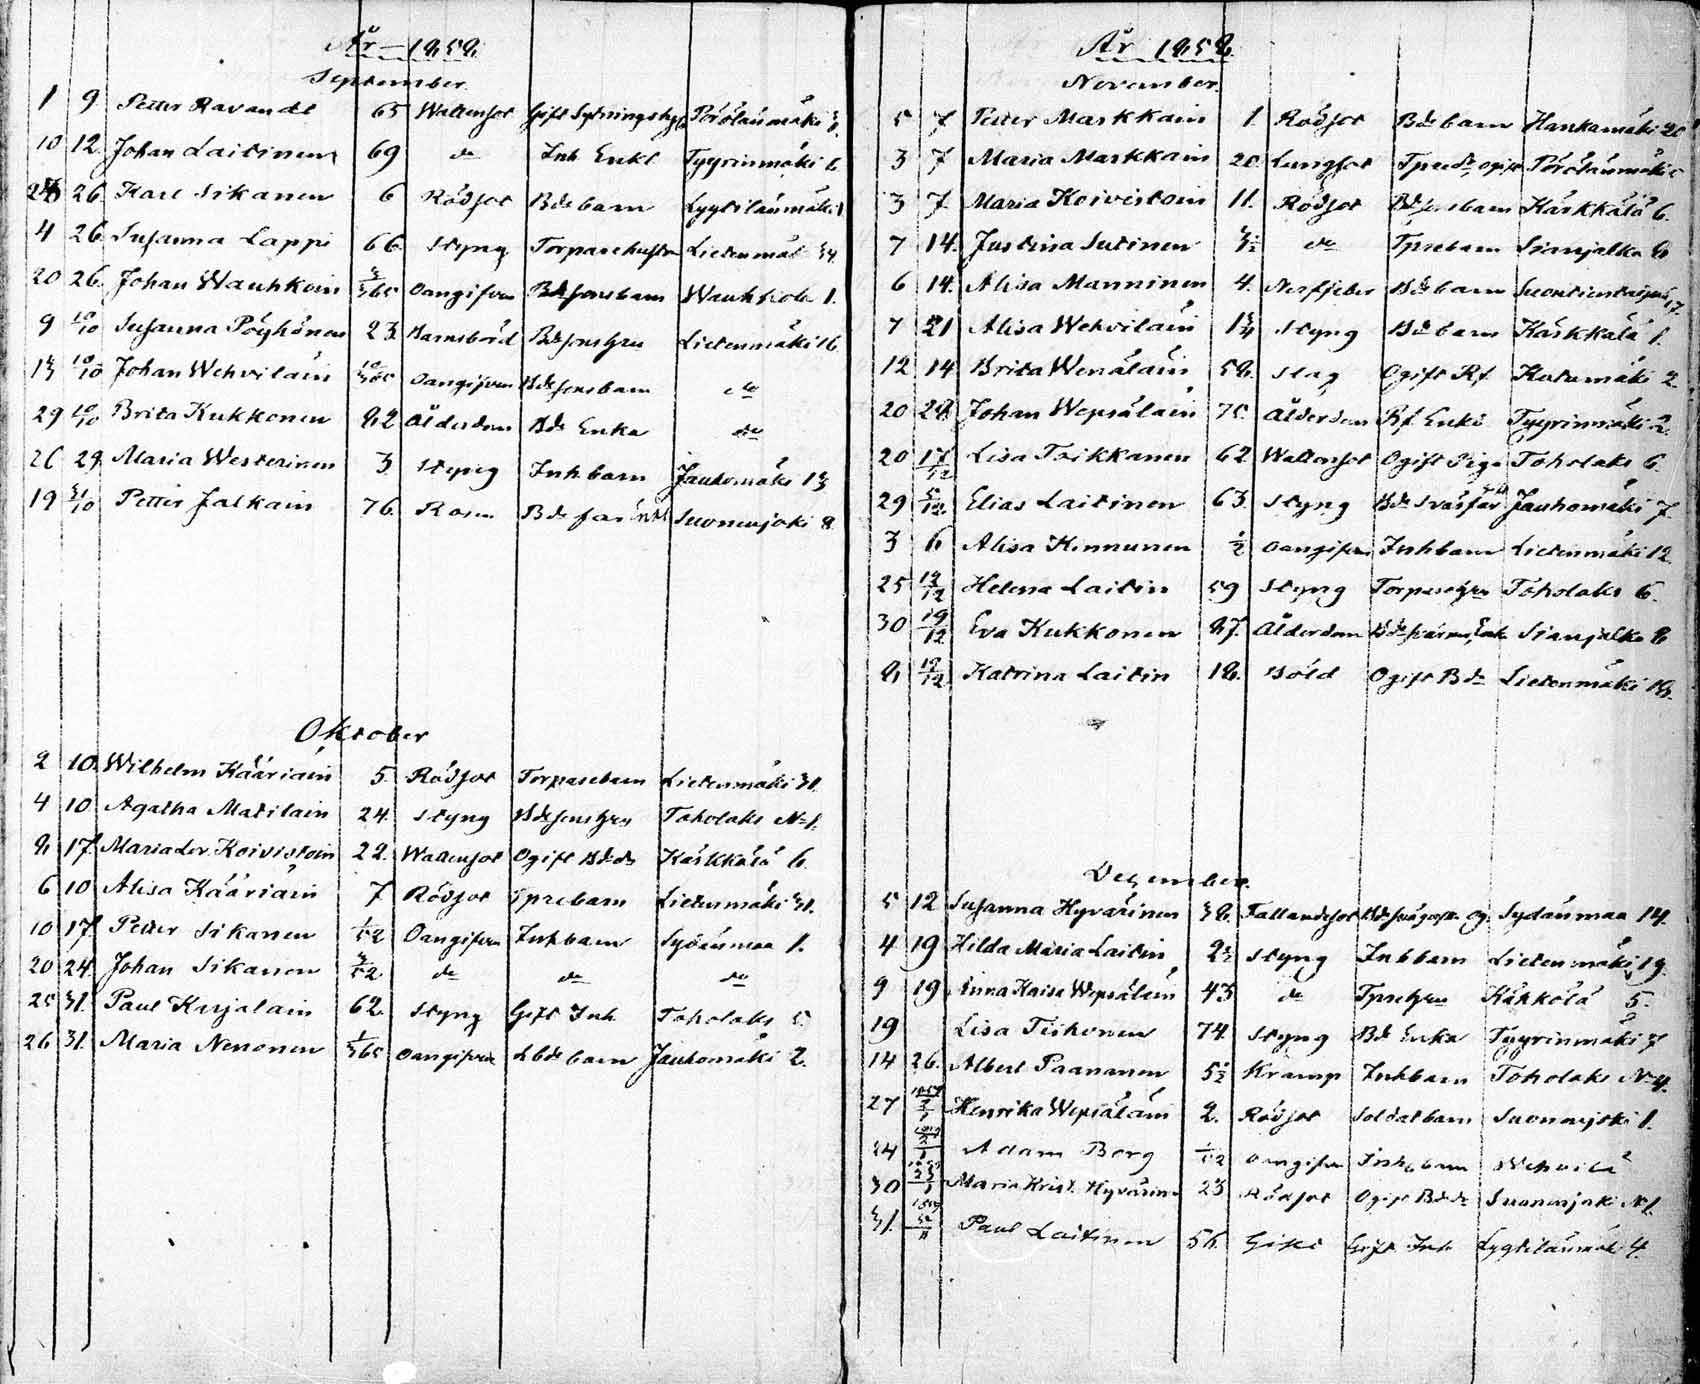 År 1858
September
1 9 Petter Ravandi 65 Wattensot Gift Sytningshj Pörölänmäki 3
10 12. Johan Laitinen 69 do Inh Enkl Tyyrinmäki 6
26 Karl Sikanen 6 Rödsot Bde barn Lyytilänmäki
4 26 Susanna Lappi 66 Styng Torpare hustru Lietenmäk 34
20 26. Johan Wauhkoin 3/365 Oangifven Bdesons barn Wauhkola 1.
9 10/10 Susanna Pöyhönen 23 Barnsbörd Bdesons Hru Lietenmäki 16
13 10/10 Johan Wehviläin 10/365 Oangifven Bdesons barn do
29 10/10 Brita Kukkonen 82 Ålderdom Bde Enka do
26 29 Maria Westerinen 3 Styng Inh barn Jauhomäki 13
19 31/10 Petter Jalkain 76. Rosen Bde far Suonenjoki 8
Oktober
2 10. Wilhelm Kääriäin 5. Rödsot Torparebarn Lietenmäki 31.
4 10 Agatha Matilain 24. Styng Bdesons Hru Toholaks N 1.
8 17. Maria Lov. Koivistoin 22. Wattensot Ogift Bdedr Kärkkälä 6
6 10 Alisa Kääriäin 7 Rödsot Tprebarn Lietenmäki 31.
10 17. Petter Sikanen 1/52 Oangifven Inh barn Sydänmaa 1.
20 24. Johan Sikanen 3/52 do do do
25 31. Paul Karjalain 62. Styng Gift Inh Toholaks 5
26 31. Maria Nenonen 1/365 Oangifven Lbde barn Jauhomäki 2.
År 1858
November.
5 7 Petter Markkain 1. Rödsot Bde barn Hankamäki 20
3 7 Maria Markkain 20 Lungsot Tpredr ogift Pörölänmäki
3 7. Maria Koivistoin 11. Rödsot Bdesons barn Kärkkälä 6.
7 14. Justina Sutinen 3½ do Tprebarn Sianjalka 8
6 14. Alisa Manninen 4. Nerffeber Bde barn 17.
7 21 Alisa Wehviläin 1¾ Styng Bde barn Kärkkälä 1.
12 14 Brita Wenäläin 58. Slag Ogift Rf. Kutumäki 2
20 28. Johan Wepsäläin 75. Ålderdom Rf Enkl Tyyrinmäki 2.
20 17/12 Lisa Toikkanen 62 Wattensot Ogift Piga Toholaks 6
29 5/12 Elias Laitinen 63. Styng Bde Svärfar Jauhomäki 7.
3 6 Alisa Kinnunen ½ Oangifven Inh barn Lietenmäki 12
25 12/12 Helena Laitin 59 Styng Torpare Hru Toholaks 6.
30 19/12 Eva Kukkonen 87. Ålderdom Bde svärmor Enk Sianjalka 8
8 12/12 Katrina Laitin 18. Böld Ogift Bde Lietenmäki 18.
December.
5 12 Susanna Hyvärinen 38. Fallandesot Sydänmaa 14.
4 19 Hilda Maria Laitin 2½ Styng Inh barn Lietenmäki 19
9 19 Anna Kaisa Wepsäläin 43 do Tpre Hru Käkkölä 5.
19 Lisa Tiihonen 74. Styng Bde Enka Tyyrinmäki 7
14 26. Albert Paananen 5½ Kramp Inh barn Toholaks N 4.
27 1859 2/1 Henrika Wepsäläin 2. Rödsot Soldatbarn Suonenjoki 1.
24 1859 2/1 Adam Berg 1/52 Oangifven Inh barn Wehvilä
30 1859 23/1 Maria Krist. Hyvärin 23 Rödsot Ogift Bdedr Suonenjoki N 1.
31. 1859 Paul Laitinen 56. Gikt Gift Inh Lyytilänmäk 4.